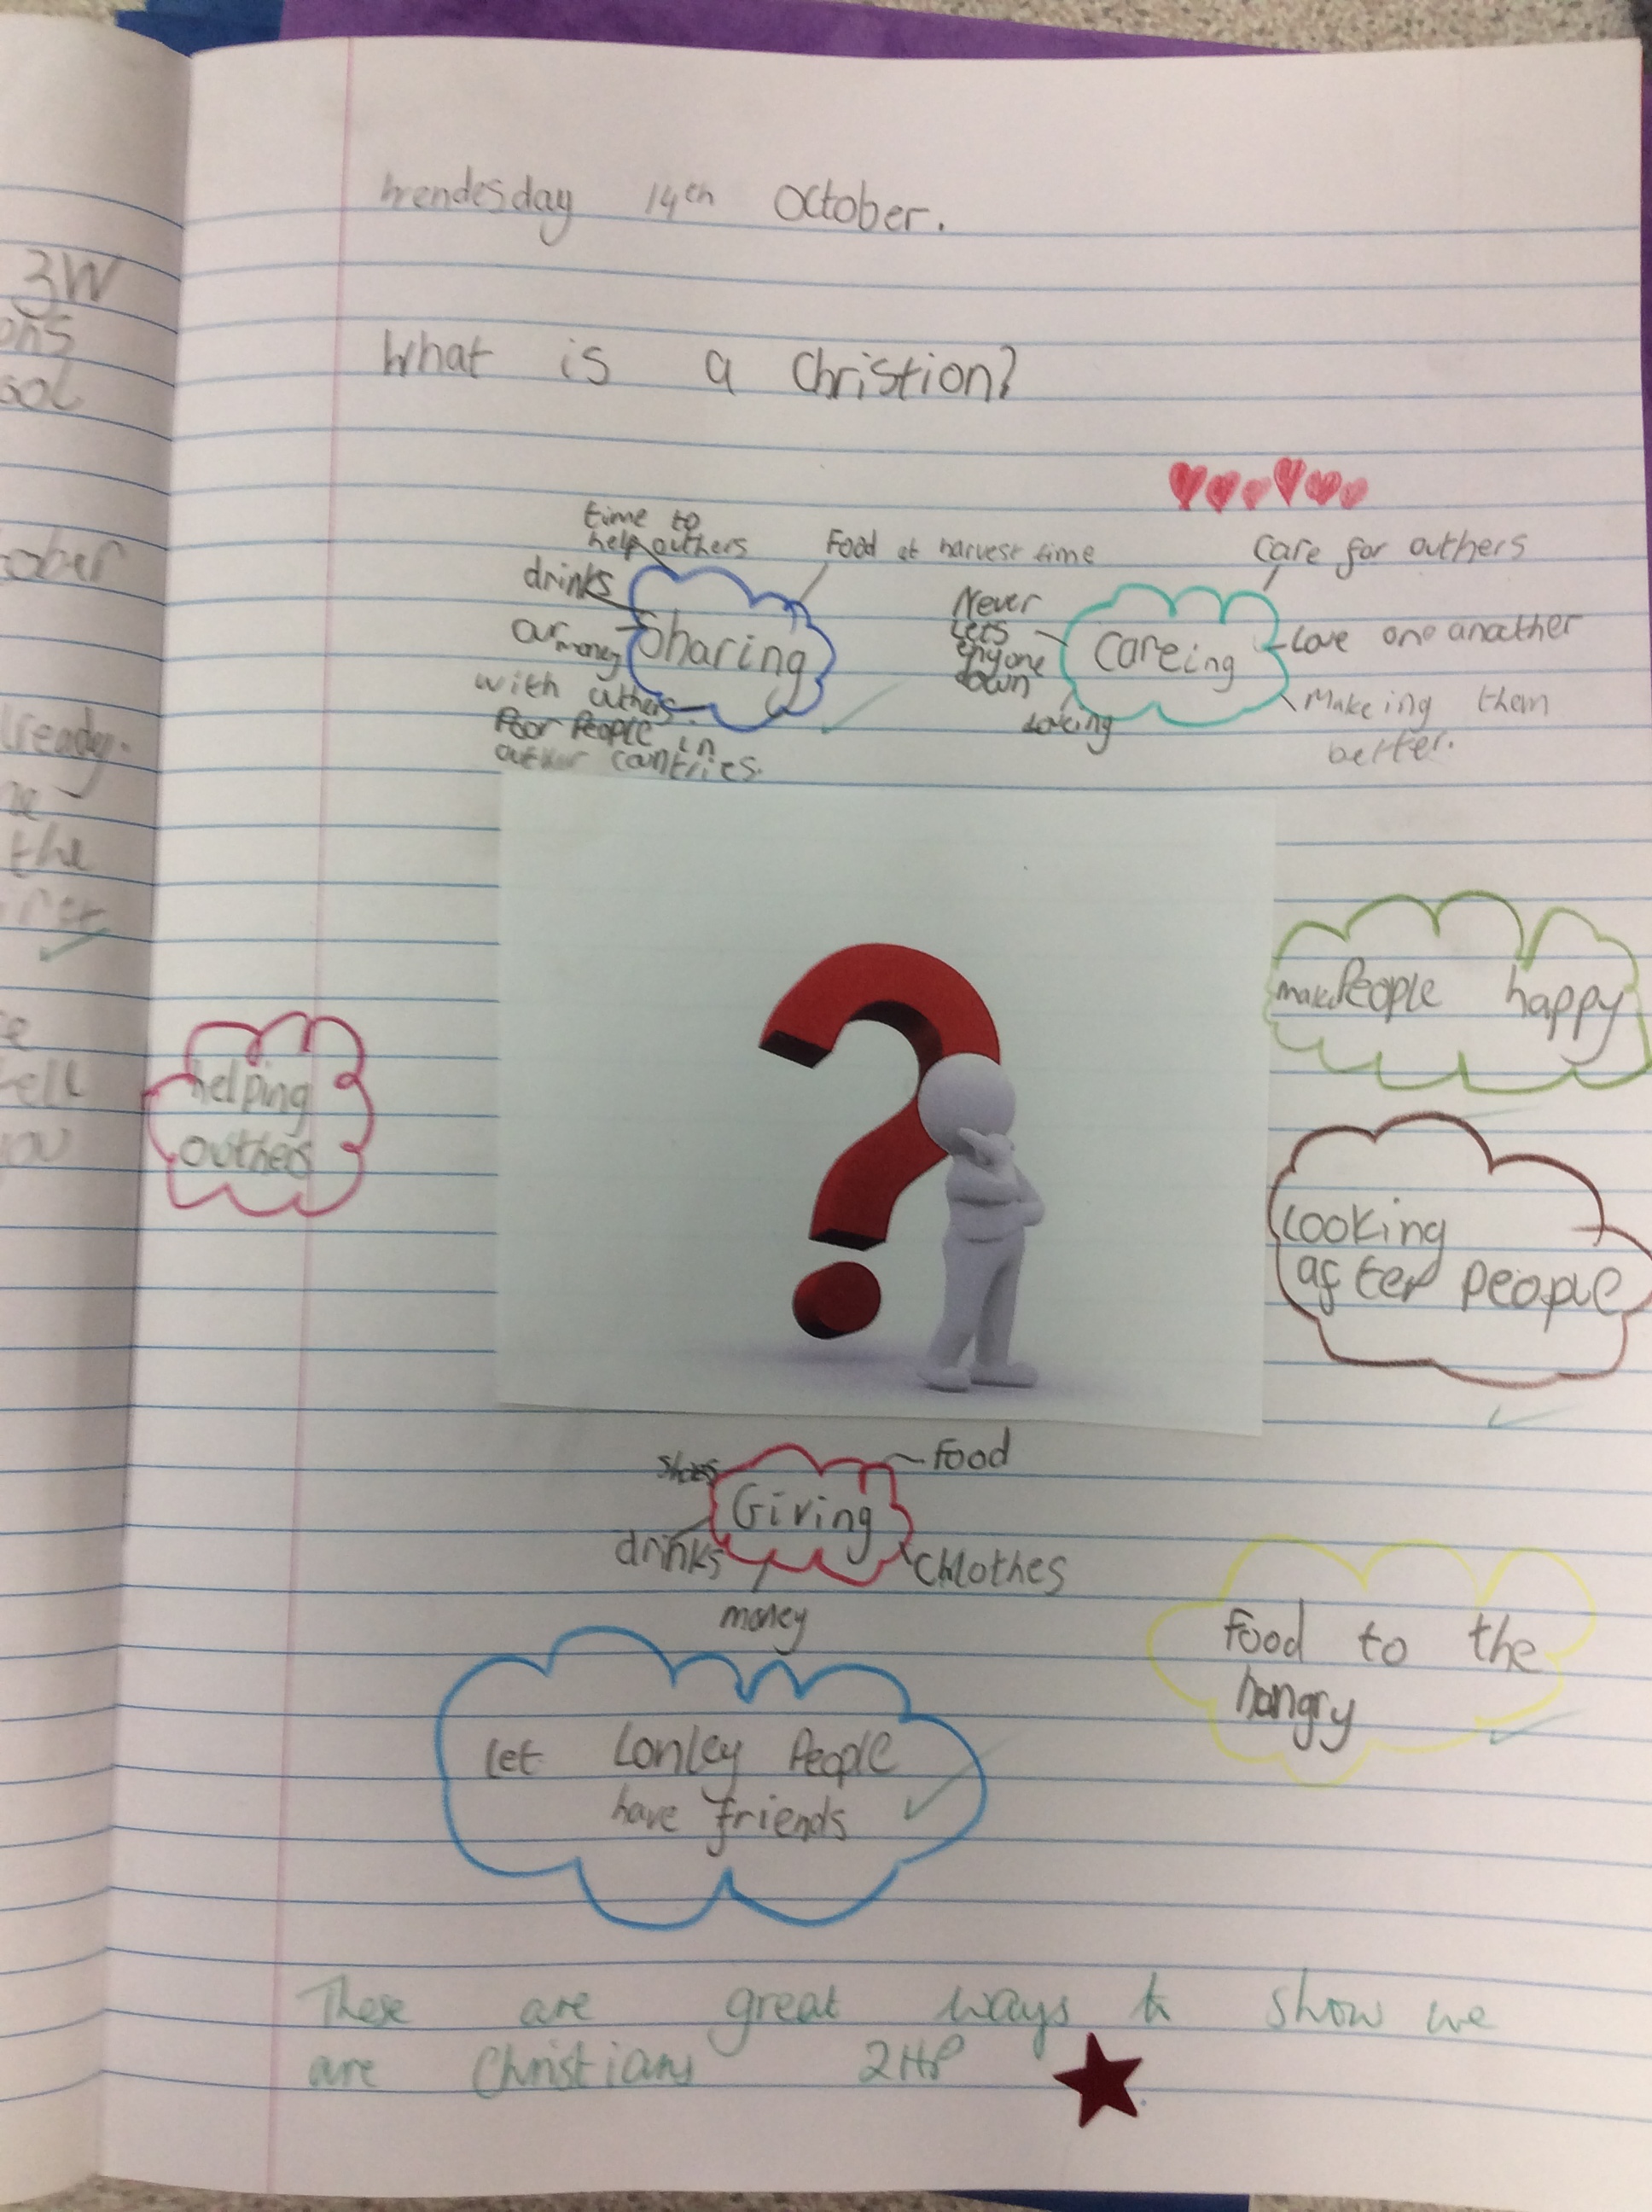 3W
ons
ool
tober
lready.
ne
the
ell
Wendesday 14th October.
What is a Christion?
time to
help outhers
Food at harvest time
drinks
our money
with outhers
Poor People in
outher countries.
Sharing
Care for outhers
Never
Lets
enyone
down
Careing
Love one anouther
Makeing them
better.
make People happy
helping
outhers
Looking
after people
shoes
Food
Giving
drinks
Chlothes
money
Food to the
hungry
Let Lonley People
have friends
These are great ways to show we
are Christians 2HP